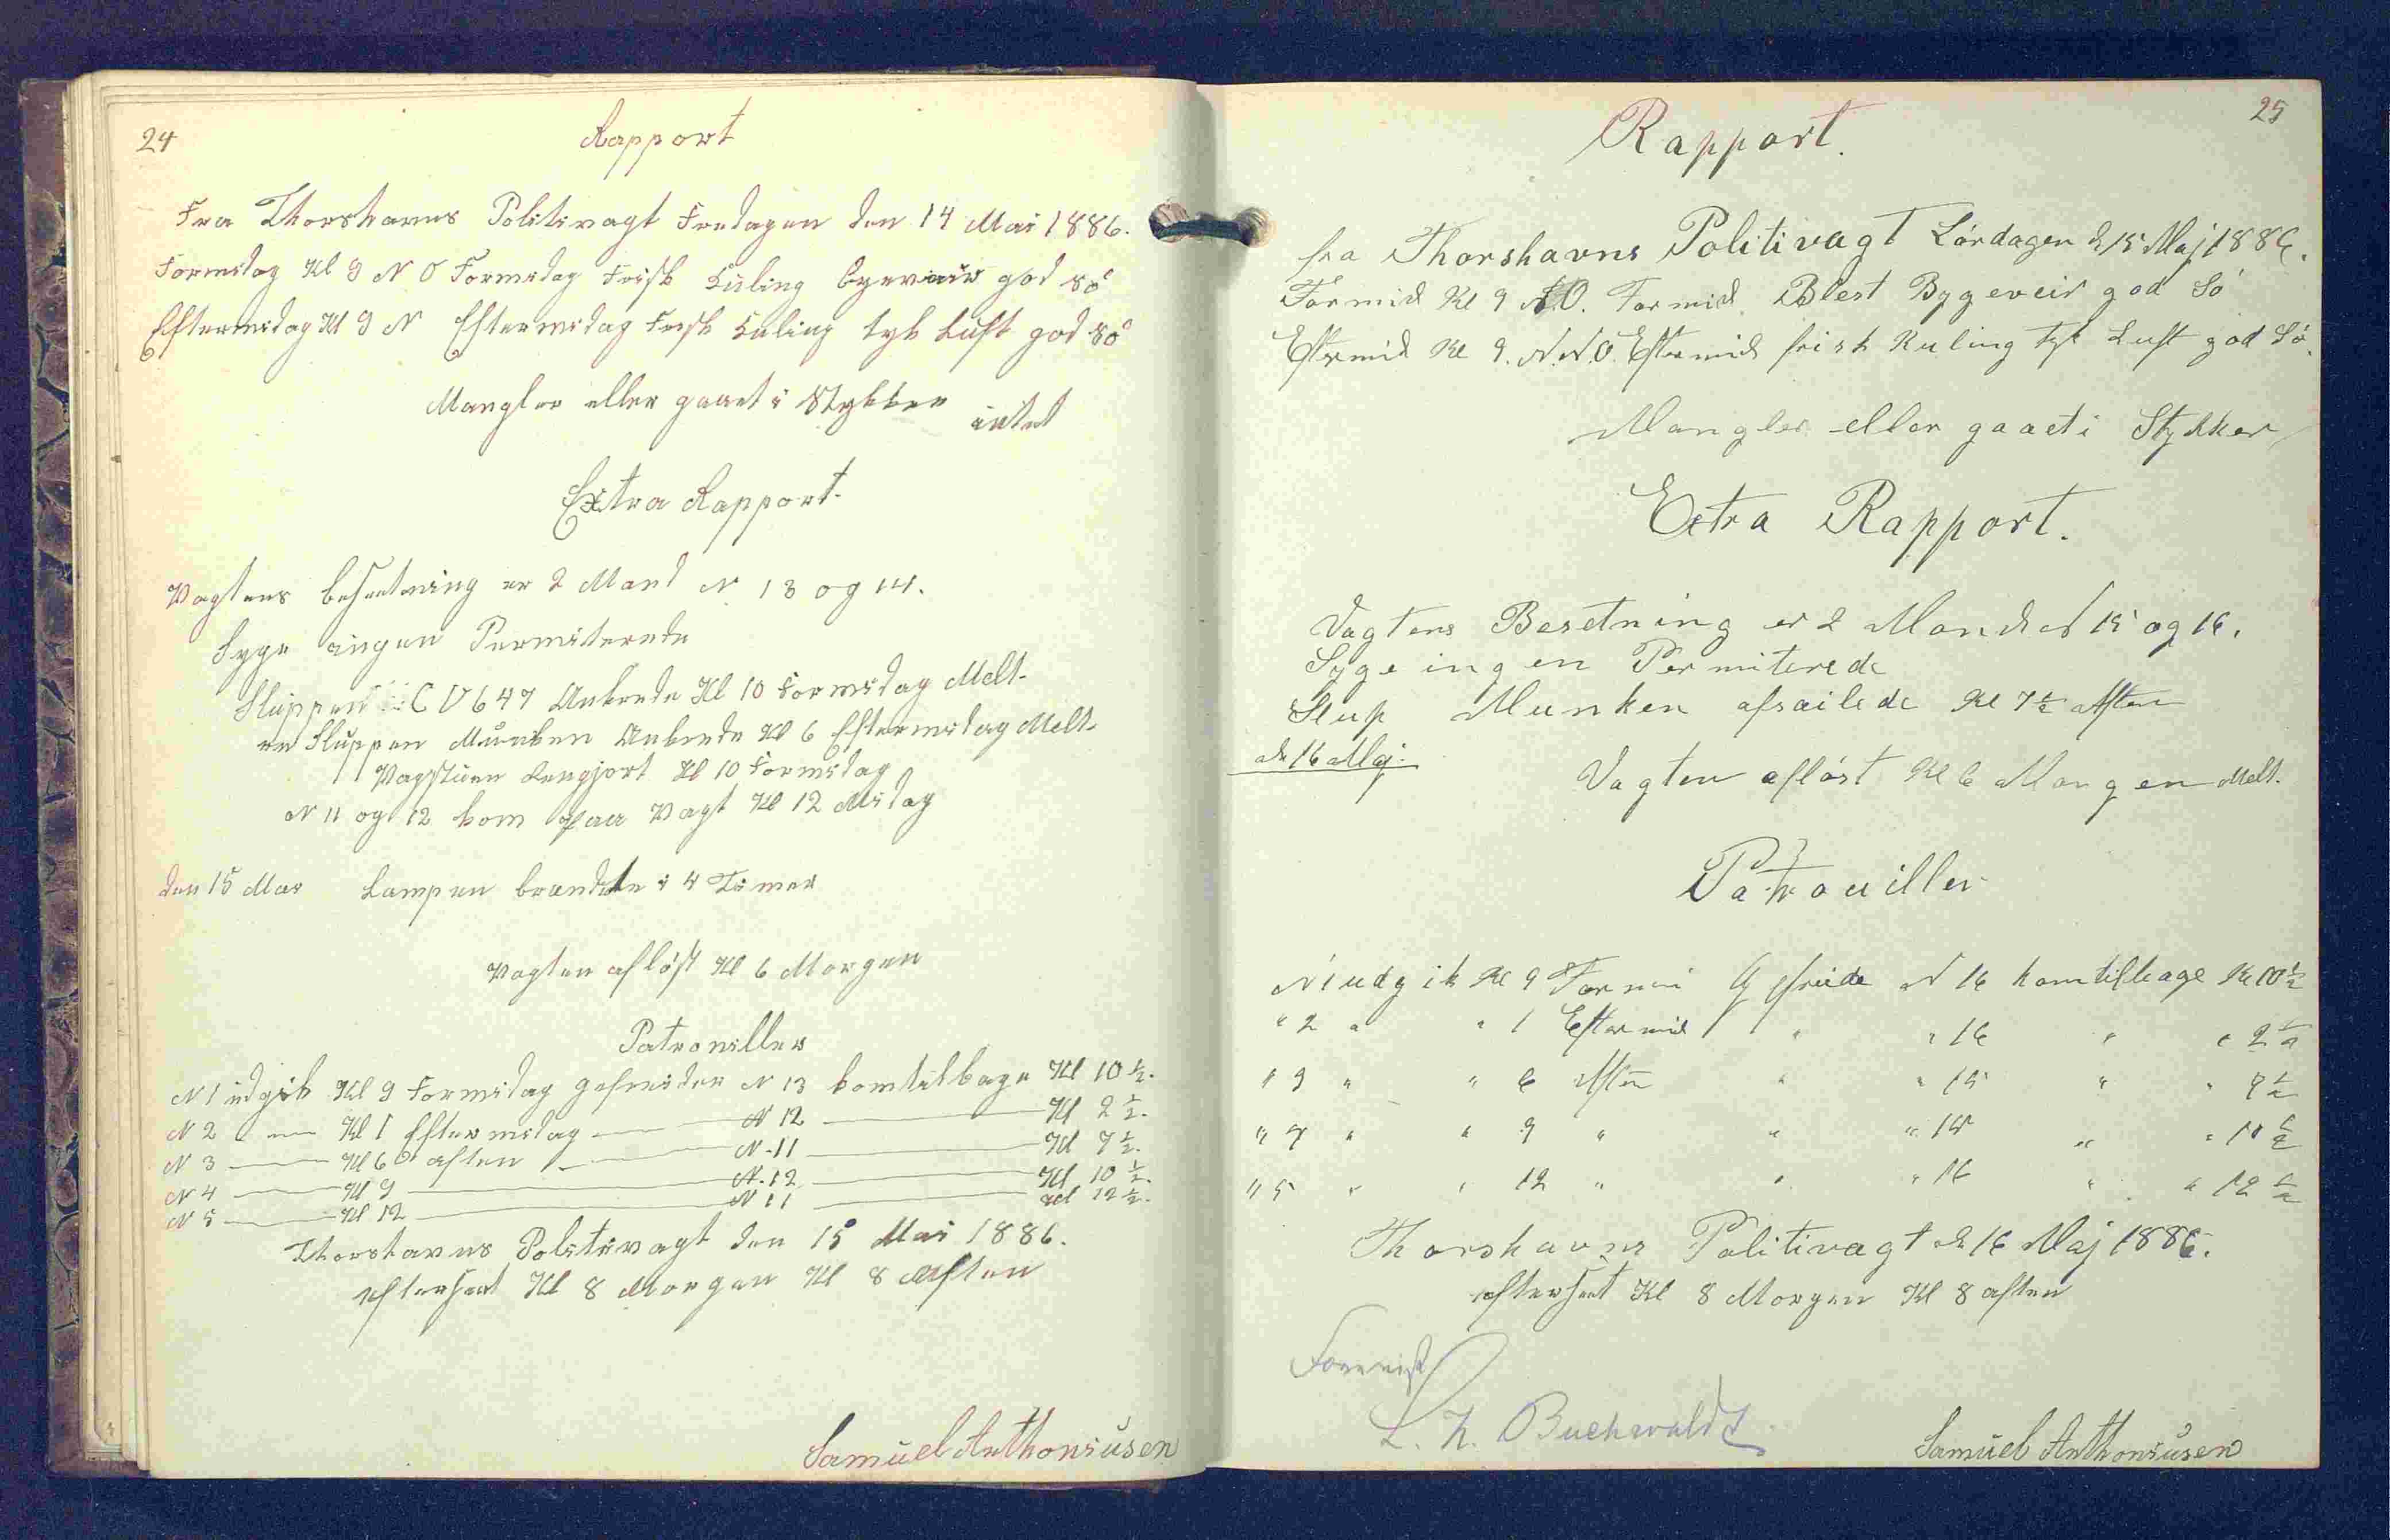 24
Rapport
Fra Thorshavns Politivagt Fredagen den 14 Mai 1886.
Formidag Kl 9 N O Formidag Frisk Kuling bygevair god Sö
Eftermidag Kl 9 N Eftermidag Frisk Kuling tyk Luft god Sö
Mangler eller gaaet i Stykker intet
Extra Rapport.
Vagtens besetning er 2 Mand N 13 og 14.
Syge ingen Permiterede
Sluppen CV647 Ankrede Kl 10 Formidag Melt.
Sluppen Munken Ankrede Kl 6 Eftermidag Melt.
Vagstuen Rengjort Kl 10 Formidag
N 11 og 12 kom paa Vagt Kl 12 Midag
den 15 Mai Lampen brændte i 4 Timer
Vagten afløst Kl 6 Morgen
Patroviller
N 1 udgik Kl 9 Formidag Gefreider N 13 kom tilbage Kl 10 ½.
N 2 — Kl 1 Eftermidag — N 12 — Kl 2 ½.
N 3 — Kl 6 aften — N. 11 — Kl 7 ½.
N 4 — Kl 9 — N. 12 — Kl 10 ½.
N 5 — Kl 12 — N 11 — Kl 12 ½.
Thorshavns Politivagt den 15 Mai 1886.
efterseet Kl 8 Morgen Kl 8 Aften
Samuel Anthoniusen
25
Rapport.
fra Thorshavns Politivagt Lördagen d 15 Maj 1886.
Formid Kl 9 N.O. Formid. Blest Bygeveir god Sö
Eftermid Kl 9. N.N.O. Eftermid frisk Kuling tyk Luft god Sö.
Mangler eller gaaet i Stykker
Extra Rapport.
Vagtens Besetning er 2 Mand N 15 og 16.
Syge ingen Permiterede
Slup Munken afsailede Kl 7½ Aften
d 16 Maj. Vagten afløst Kl 6 Morgen Melt.
Patrouiller
N 1 udgik Kl 9 Formi Gefreide N 16 kom tilbage Kl 10½
" 2 " " 1 Eftermid " " 16 " " 2½
" 3 " " 6 Aften " " 15 " " 7½
" 4 " " 9 " " " 15 " " 10½
" 5 " " 12 " " " 16 " " 12½
Thorshavns Politivagt d 16 Maj 1886.
efterseet Kl 8 Morgen Kl 8 aften
Forevist
Buchwaldt
Samuel Anthoniusen